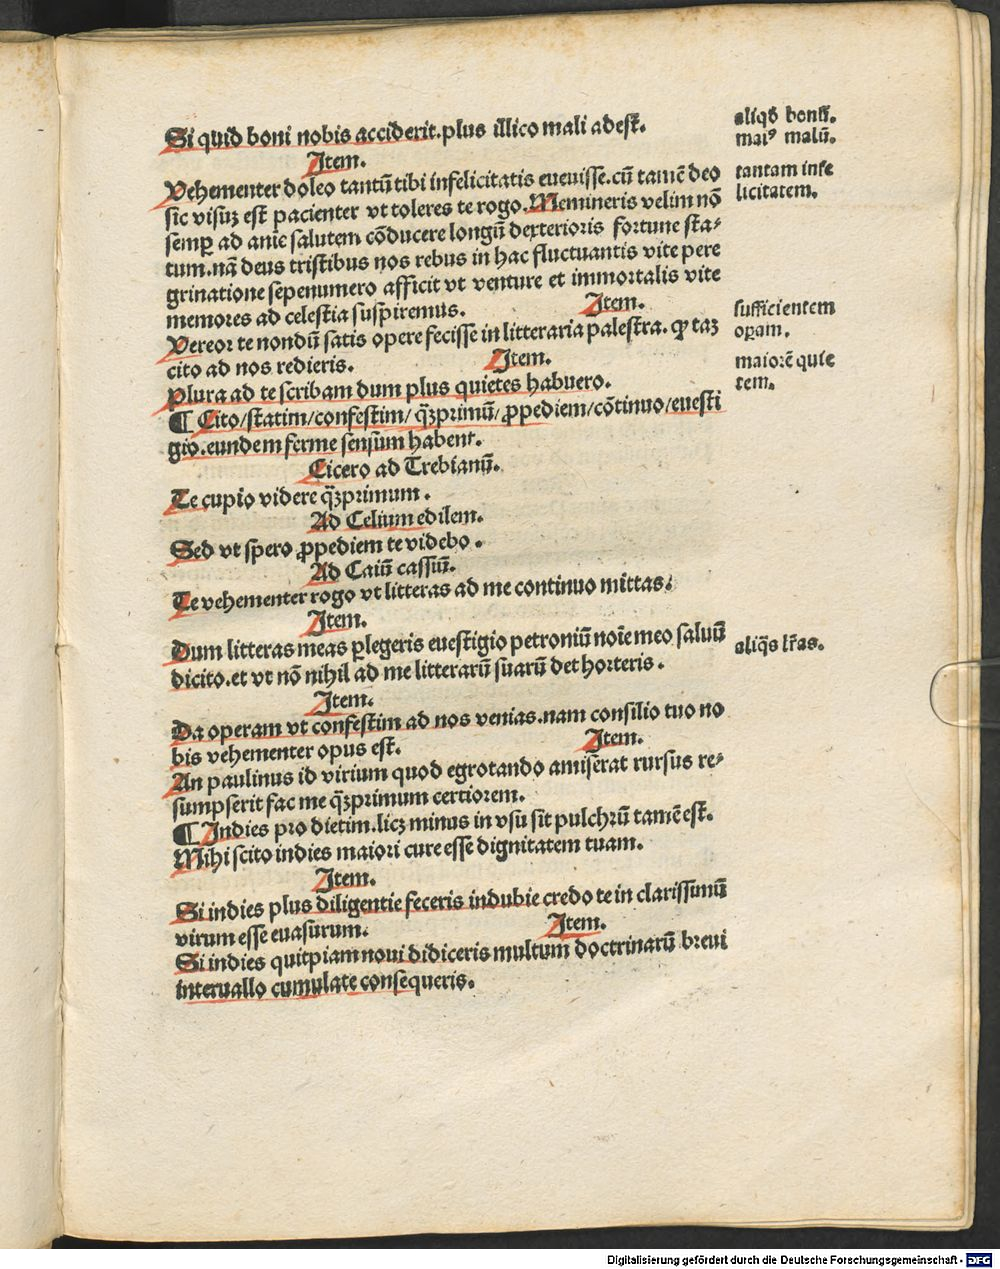 Si quid boni nobis acciderit. plus illico mali adest.
Item.
Vehementer doleo tantū tibi infelicitatis euenisse. cū tamē deo
sic visuȝ est pacienter vt toleres te rogo. Memineris velim nō
semꝑ ad anie salutem cōducere longū dexterioris fortune sta⸗
tum. nā deus tristibus nos rebus in hac fluctuantis vite pere
grinatione sepenumero afficit vt venture et immortalis vite
memores ad celestia suspiremus. Item.
Vereor te nondū satis opere fecisse in litteraria palestra. ꝙ taȝ
cito ad nos redieris. Item.
Plura ad te scribam dum plus quietes habuero.
¶ Cito/statim/confestim/ q̄ȝprimū/ ꝓpediem/cōtinuo/euesti
gio. eundem ferme sensum habent.
Cicero ad Trebianū.
Te cupio videre q̄ȝprimum.
Ad Celium edilem.
Sed vt spero ꝓpediem te videbo.
Ad Caiū cassiū.
Te vehementer rogo vt litteras ad me continuo mittas.
Item.
Dum litteras meas ꝑlegeris euestigio petroniū noīe meo saluū
dicito. et vt nō nihil ad me litterarū suarū det horteris.
Item.
Da operam vt confestim ad nos venias. nam consilio tuo no
bis vehementer opus est. Item.
An paulinus id virium quod egrotando amiserat rursus re⸗
sumpserit fac me q̄ȝprimum certiorem.
¶ Indies pro dietim. licȝ minus in vsu sit pulchrū tamē est.
Mihi scito indies maiori cure esse dignitatem tuam.
Item.
Si indies plus diligentie feceris indubie credo te in clarissimū
virum esse euasurum. Item.
Si indies quitpiam noui didiceris multum doctrinarū breui
interuallo cumulate consequeris.
aliqd bonū.
maiꝰ malū.
tantam infe
licitatem.
sufficientem
oꝑam.
maiorē quie
tem.
aliq̄s lr̄as.
Digitalisierung gefördert durch die Deutsche Forschungsgemeinschaft - DFG